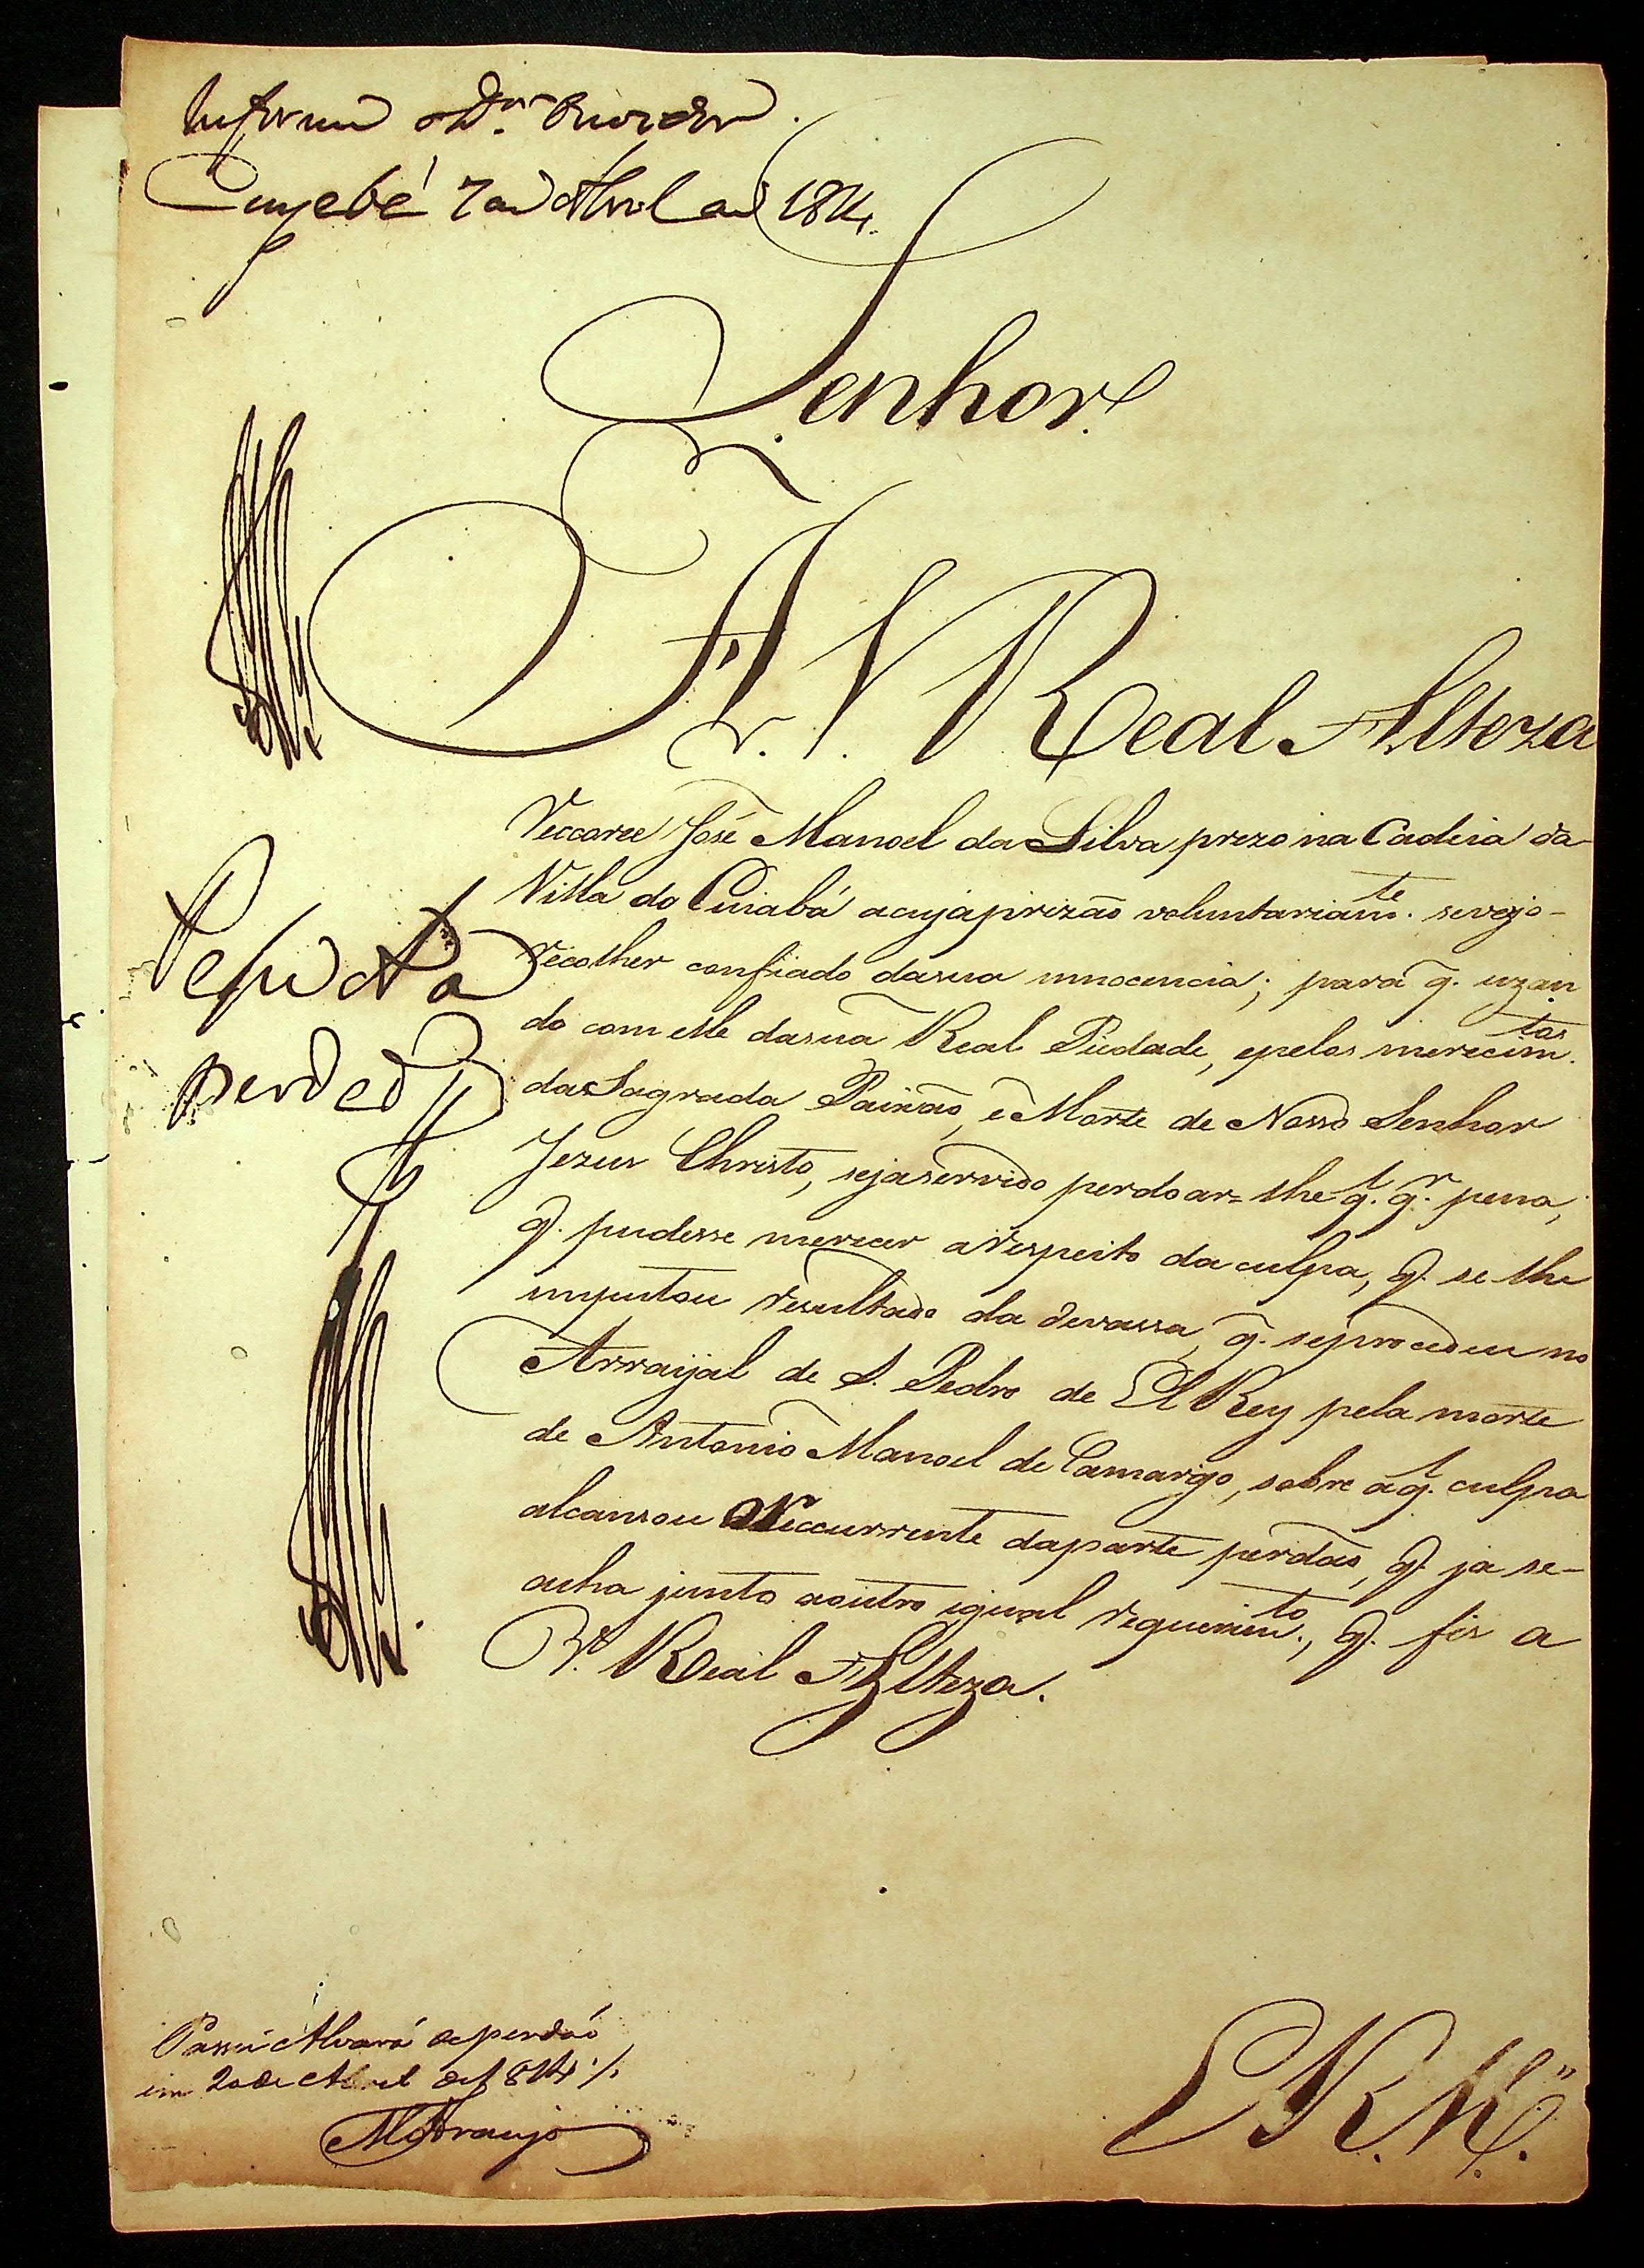 Informe o D.or Ouvidor.
Cuyabá 7 de Abril de 1814.
Senhor.
A V. Real Alteza
Reccorre José Manoel da Silva prezo na Cadeia da
Villa do Cuiabá acuja prizaõ voluntariam.te se veyo
recolher confiado dasua innocencia; para q̃. uzan
do com elle dasua Real Piedade, epelos merecim.tos
da Sagrada Paixaõ, e Morte de Nosso Senhor
Jezus Christo, seja servido perdoar=lhe q.l q.r pena,
q̃. pudesse merecer arespeito da culpa, q̃. se lhe
imputou resultado da devassa, q̃. seprocedeu no
Arraijal de S. Pedro de El Rey pela morte
de Antonio Manoel de Camargo, sobre aq.l culpa
alcansou o Reccurrente daparte perdaõ, q̃. ja se-
acha junto aoutro igual requerim.to, q̃. fes a
V. Real Alteza.
Passe Alvará
perdaõ
Passei Alvará de perdaõ
em 20 de Abril de 1814 ./.
M Araujo
E. R. M.ce